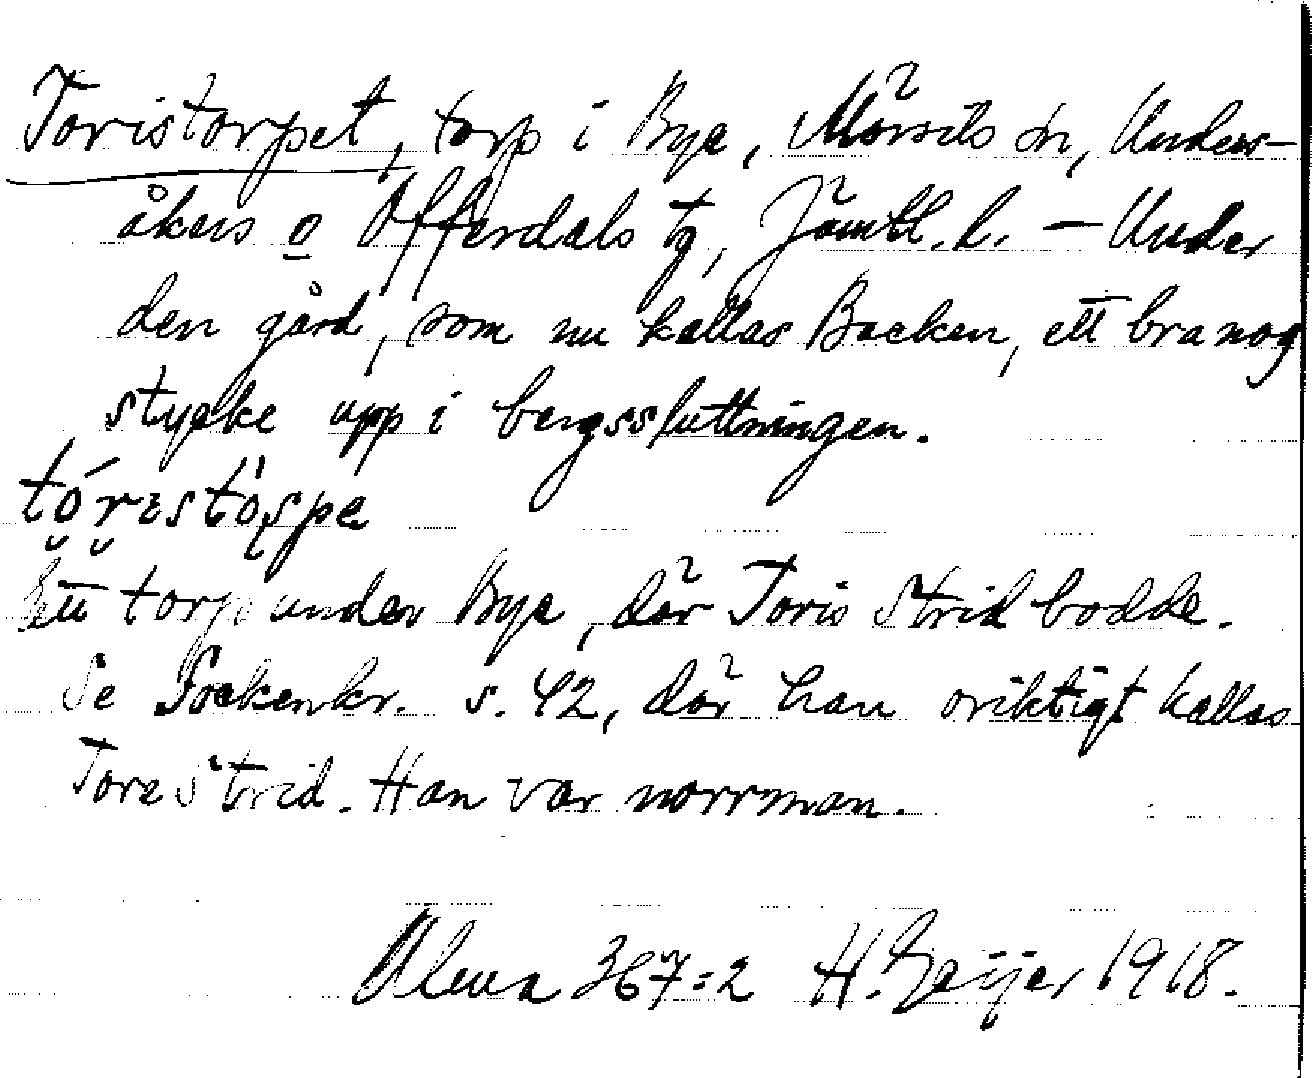 Toristorpet, torp i Bye, Mörsils sn, Unders-
åkers o Offerdals tg, Jämtl. l. — Under
den gård, som nu kallas Backen, ett bra nog
stycke upp i bergssluttningen.
tórɪstöspe
Ett torp under Bye, där Toris Strid bodde.
Se Sockenkr. s. 42, där han oriktigt kallas
Tore Strid. Han var norrman.
Ulma 367:2 H. Geijer 1918.